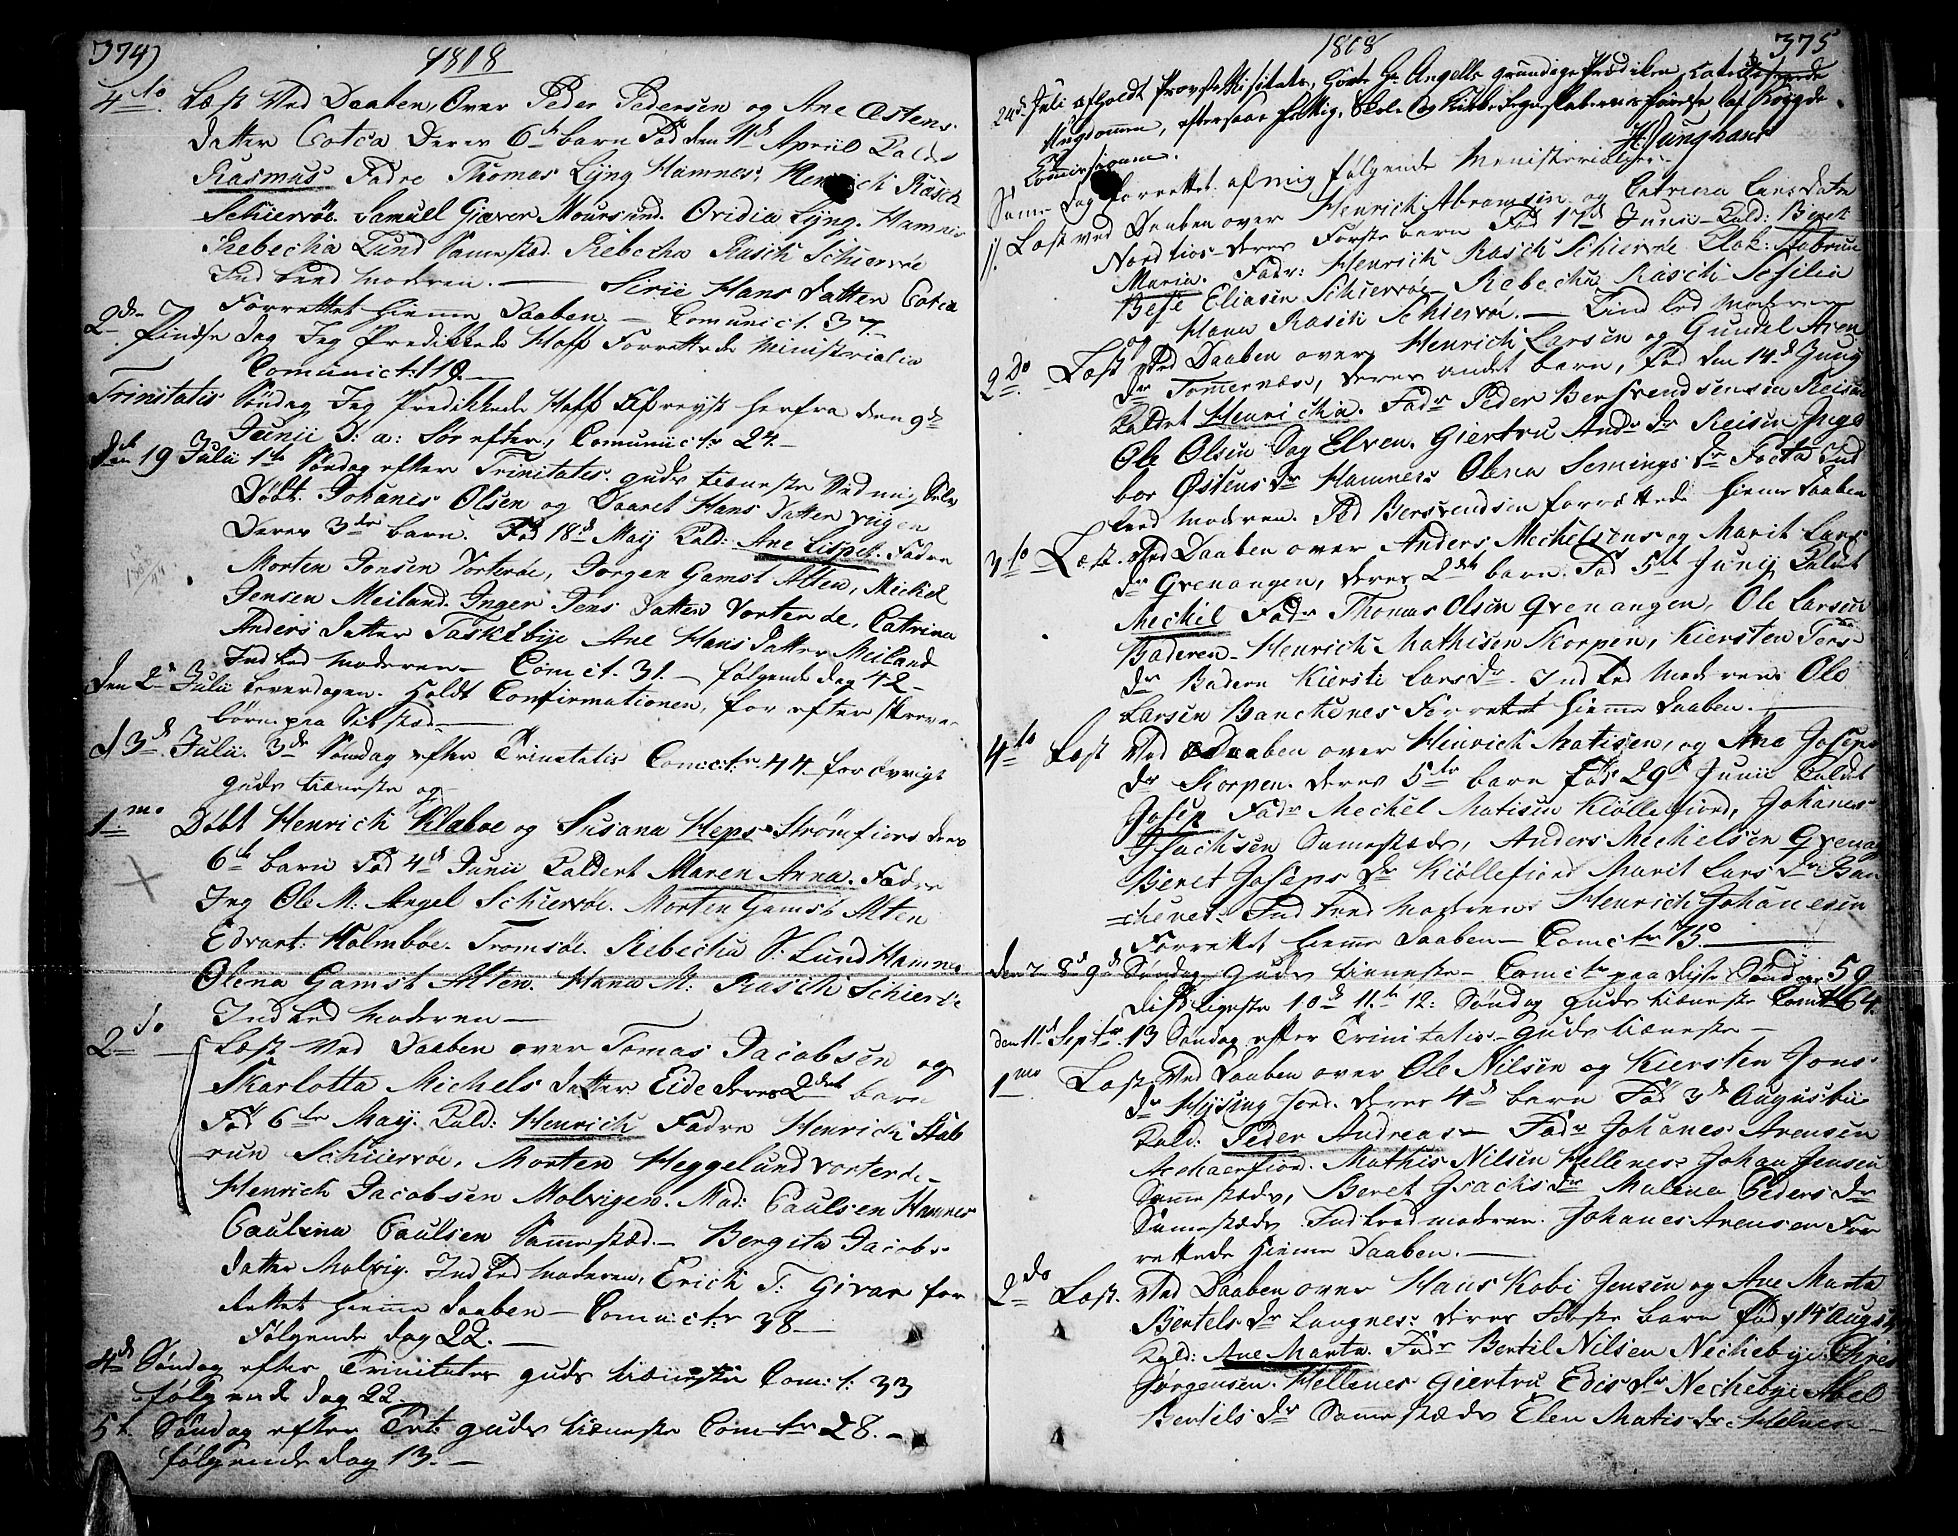 374)
1808
4to. Læst Ved Daaben, Over Peder Pedersen og Ane Østens
datter Cotca Deres 6te barn Fød den 11te April Kaldt
Rasmus Fadre Thomas Lyng Hamnes, Henrich Rasch
Schiervøe. Samuell Giæver Moursund. Ovidia Lyng. Hamnes
Rebecha Lund Sammestæd. Rebecha Rasch Schiervøe
Indled Moderen. — Sirie Hans datter Cotca
Forrettet Hiemme Daaben. — Comunict. 37.
2den Pindse dag Jeg Predikkede Holt Forrettede Ministerialia
Comunict: 119. —
Trinitatis Søndag Jeg Predikkede Holt reyst herfra den 9de
Junii Comunict: 24. —
den 19 Junii 1te Søndag efter Trinitatis. guds tieneste Ved mig Selv
Døbt. Johanis Olsen og Maaret Hans datter
Deres 3de barn. Fød 18de May Kald: Ane Lispet. Fadre
Morten Jonsen Vorterøe, Jorgen Gamst Alten, Michel
Jensen Meiland. Inger Jens datter Vorterøe, Catrina
Anders datter Taskebye Ane Hans datter Meiland
Indled Moderen — Comct. 31. — følgende dag 42 —
den 2de Julii Løverdagen. Holdt Confirmationen, for efter skrevne
børn paa Sit stæd. —
d 3de Julii. 3de Søndag efter Trinitatis Comctr. 44. for øvrigt
guds tieneste og
1mo Døbt Henrich Klaboe og Susana Heps Strømfiord deres
6te barn Fød 4de Junii Kaldet Maren Anna. Fadre
Jeg Ole M: Angel Schiervøe. Morten Gamst Alten
Edvart: Holmbøe. Tromsøe. Rebecha S: Lund Hamnes
Olena Gamst Alten. Hana M: Rasch Schiervøe
Indled Moderen —
2do — Læst Ved Daaben over Tomas Jacobsen og
Skarlotta Michels datter Eide deres 2det barn
Fød 6te May. Kald: Henrich Fadre Henrich Stab
run Schiervøe, Morten Heggelund Vorterøe
Henrich Jacobsen Molvigen. Mad: Paulsen Hamnes
Paulina Paulsen Samestæd. — Bergita Jacobs
datter Molvig. Indled Moderen, Erich T: Givær for
rettet Hiemme daaben — Comunictr. 38 —
Følgende dag 22. —
4de Søndag efter Trinitates guds tieneste Com: t: 33
følgende dag 22 —
5t. Søndag efter Trit: guds tieneste Comtr 28. —
følgende dag 13. —
1808
375
24de Juli afholdt Provste Visitats, hørte Hr Angells grundige Prædiken, Catechiserede
Ungdommen, eftersaae Fattig, Skole og Kirke Regnskaberne førelse af Bøygde
Commissionen.
H. Junghans
Same dag forrettet af mig følgende Ministerialier
1. Læst ved Daaben over Henrich Abramsen og Catrina Lars datter
Nordfios deres Første barn Fød 17de Junii Kald: Beret
Maria. Fadr: Henrich Rasch Schiervøe Stabrun
Eliasen Schiervøe Rebecha Rasch Sesilia
og Hana Rasch Schiervøe. — Indled Moderen
2do. Læst Ved Daaben over Henrich Larsen og Gunild Aren
dr Tømernæs, deres andet barn, Fød den 14de Juny
Kaldet Henricha. Fadr Peder Bersvendsen Reisen
Ole Olsen Sag Elven. Giertru Andr dr Reisen Inge
bor Østens dr Hamnes Olena Semings dr Facta Ind
led Moderen. Ped Bersvendsen forrettede Hiemme daaben
3tio Læst Ved Daaben over Anders Mechelsens og Marit Lars
dr Qvenangen, deres 2det barn. Fød 5te Junij Kaldet
Mechil Fadr Thomas Olsen Qvenangen, Ole Larsen
Baderen. Henrich Mathisen Korpen, Kiersten Ters
dr Badern Kiersti Lars dr. Indled Moderen Ole
Larsen Banchenes Forrettet Hiemme daaben. —
4to Læst Ved Daaben over Hinrich Matisen, og Ane Joseps
dr Korpen. deres 5te barn Fød 29de Junii Kaldet
Josep Fadr Mechel Matisen Kiøllefiord, Johanes
Isachsen Sammestæds, Anders Mechelsen Qvenag
Beret Joseps dr Kiøllefiord Marit Lars dr Ban
=chenes Indled Moderen. Henrich Johanesen
Forrettet Hiemme daaben — Comctr 75. —
den 7 8de 9de Søndag guds tieneste — Comctr paa disse Søndage 59
Dist. ligeste 10de 11te 12: Søndag guds tieneste Comct 64.
den 11te Septr. 13 Søndag efter Trinitatis. guds tieneste —
1mo Læst Ved Daaben over Ole Nilsen og Kiersten Jons
dr Hysing jord. deres 4de barn Fød 3de Augustii
Kald: Peder Andreas — Fadr Johanes Arensen
Mathis Nilsen Hellenes Johan Jensen
Samestæds, Beret Isachs dr Malena Peders dr
Samestæds Indled moderen. Johanes Arensen For
rettede Hiemme Daaben. —
2do Læst. Ved Daaben over Hans Kobi Jensen og Ane Marta
Bertels dr Laugnes: deres Første barn Fød 14 August
Kald: Ane Marta. Fadr Bertil Nilsen Nechebye Chres
Jørgensen. Hellenes Giertru Edis dr Nechebye Abel
Bertels dr Sammestæds Elen Matis dr Helnes —